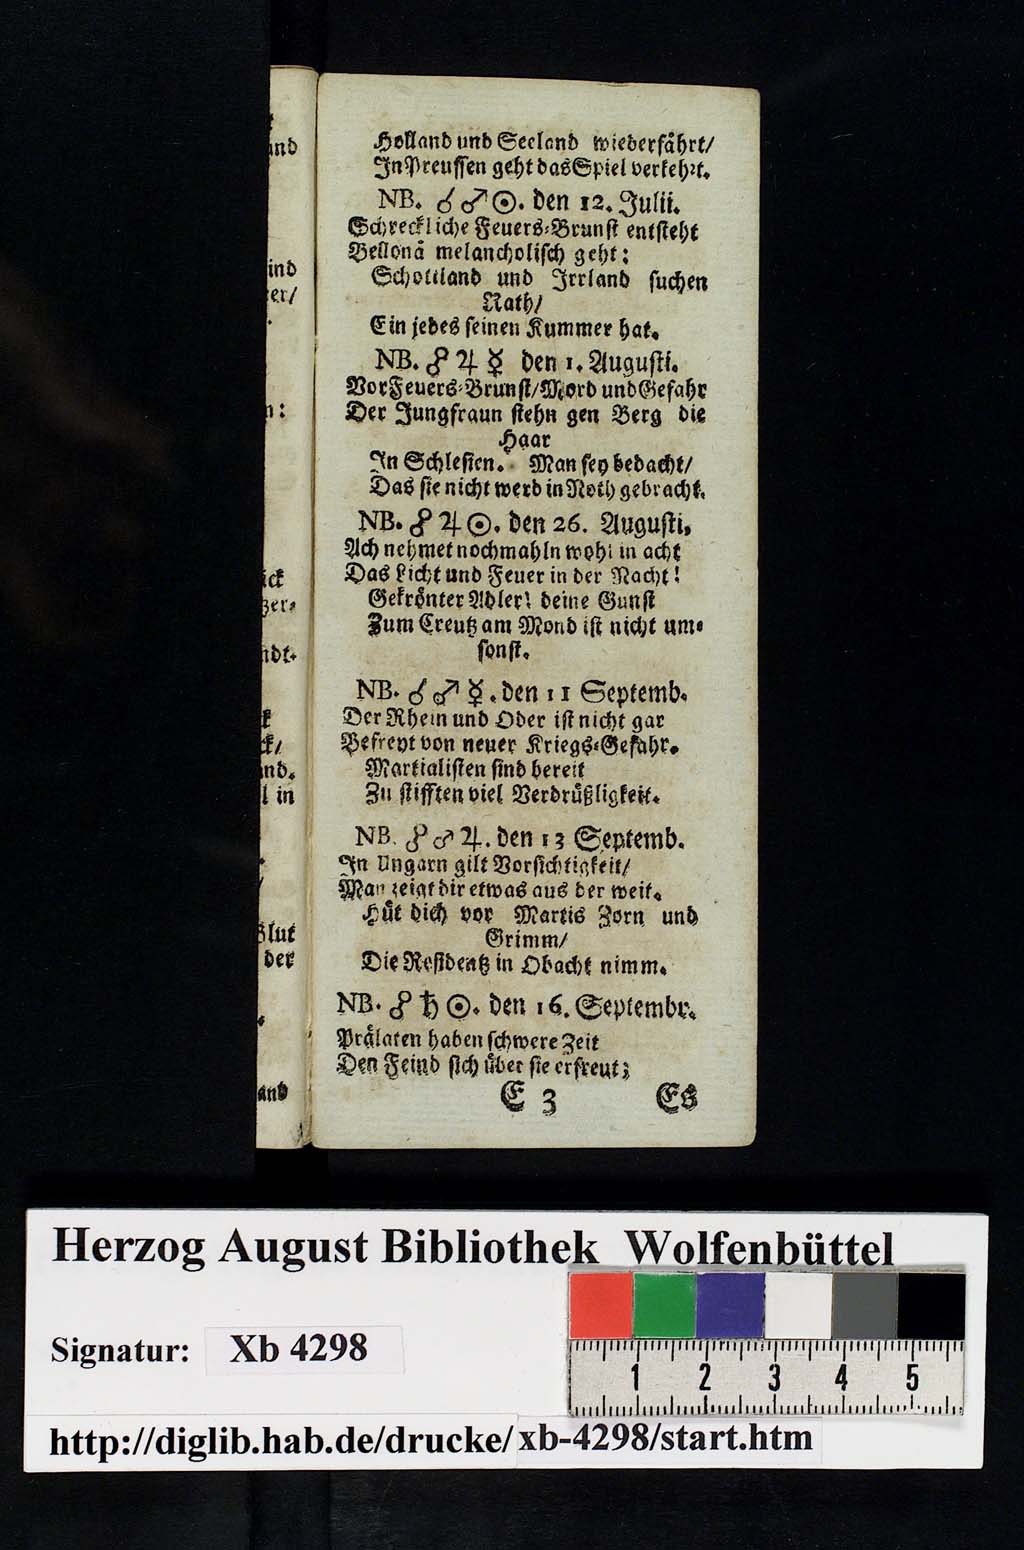 Holland und Seeland wiederfåhrt/
In Preussen geht das Spiel verkehrt.
NB. ☌ ♂ ☉. den 12. Julii.
Schreckliche Feuers-Brunst entsteht
Bellonå melancholisch geht:
Schottland und Irrland suchen
Rath/
Ein jedes seinen Kummer hat.
NB. ☍ ♃ ☿ den 1. Augusti.
Vor Feuers-Brunst/Mord und Gefahr
Der Jungfraun stehn gen Berg die
Haar
In Schlesien. Man sey bedacht/
Das sie nicht werd in Noth gebracht.
NB. ☍ ♃ ☉. den 26. Augusti.
Ach nehmet nochmahln wohl in acht
Das Licht und Feuer in der Nacht!
Gekrönter Adler! deine Gunst
Zum Creutz am Mond ist nicht um-
sonst.
NB. ☌ ♂ ☿. den 11 Septemb.
Der Rhein und Oder ist nicht gar
Befreyt von neuer Kriegs-Gefahr.
Martialisten sind bereit
Zu stifften viel Verdrůßligkeit.
NB. ☍ ♂ ♃. den 13 Septemb.
In Ungarn gilt Vorsichtigkeit/
Man zeigt dir etwas aus der weit.
Hůt dich vor Martis Zorn und
Grimm/
Die Residentz in Obacht nimm.
NB. ☍ ♄ ☉. den 16. Septembr.
Prålaten haben schwere Zeit
Den Feind sich über sie erfreut;
E 3 Es
Herzog August Bibliothek Wolfenbüttel
Signatur: Xb 4298
1 2 3 4 5
http://diglib.hab.de/drucke/xb-4298/start.htm